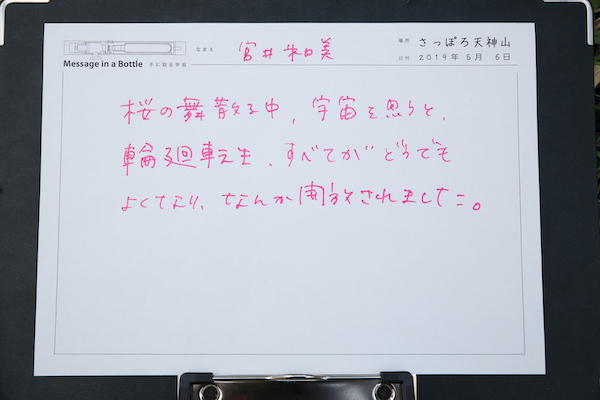 Message in a Bottle 手に取る宇宙
なまえ 宮井和美
場所 さっぽろ天神山
日付 2019年 5月 6日
桜の舞散る中、宇宙を思うと、
輪廻転生、すべてがどうでも
よくなり、なんか開放されました。